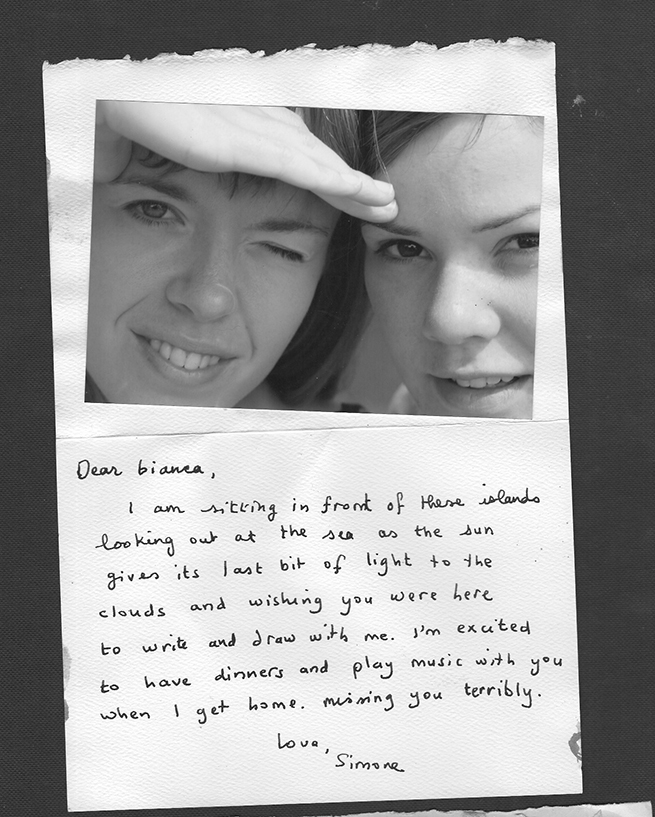 Dear bianca,
I am sitting in front of these islands
looking out at the sea as the sun
gives its last bit of light to the
clouds and wishing you were here
to write and draw with me. I'm excited
to have dinners and play music with you
when I get home. missing you terribly.
Love,
Simone